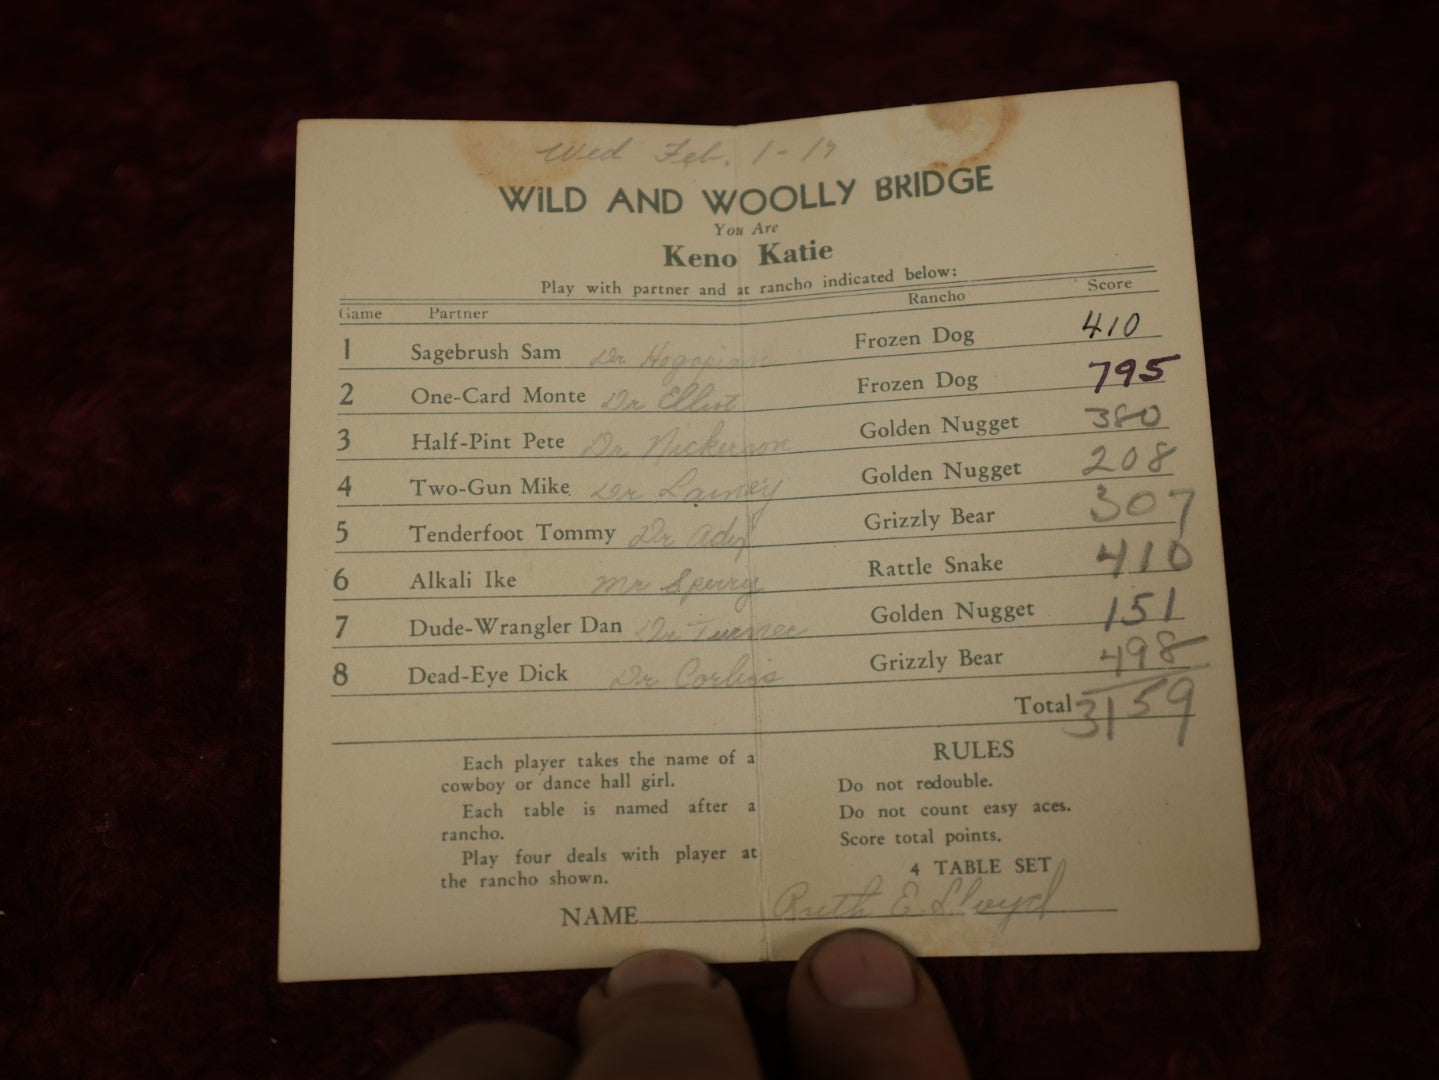 Wed Feb. 1-19
WILD AND WOOLLY BRIDGE
You Are
Keno Katie
Play with partner and at rancho indicated below:
Game Partner Rancho Score
1 Sagebrush Sam Dr Hogopian Frozen Dog 410
2 One-Card Monte Dr Elliot Frozen Dog 795
3 Half-Pint Pete Dr Nickerson Golden Nugget 380
4 Two-Gun Mike Dr Golden Nugget 208
5 Tenderfoot Tommy Dr Grizzly Bear 307
6 Alkali Ike Mr Sperry Rattle Snake 410
7 Dude-Wrangler Dan Dr Turner Golden Nugget 151
8 Dead-Eye Dick Dr Corliss Grizzly Bear 498
Total 3159
Each player takes the name of a
cowboy or dance hall girl.
Each table is named after a
rancho.
Play four deals with player at
the rancho shown.
RULES
Do not redouble.
Do not count easy aces.
Score total points.
4 TABLE SET
NAME Ruth E. Lloyd